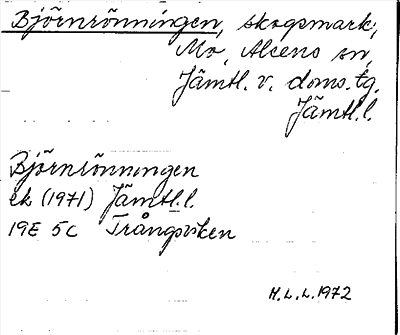 Björnrönningen, skogsmark,
Mo, Alsens sn,
Jämtl. v. doms. tg.
Jämtl.l.
Björnrönningen
ek (1971) Jämtl.l.
19E 5c Trångsviken
M.L.L. 1972